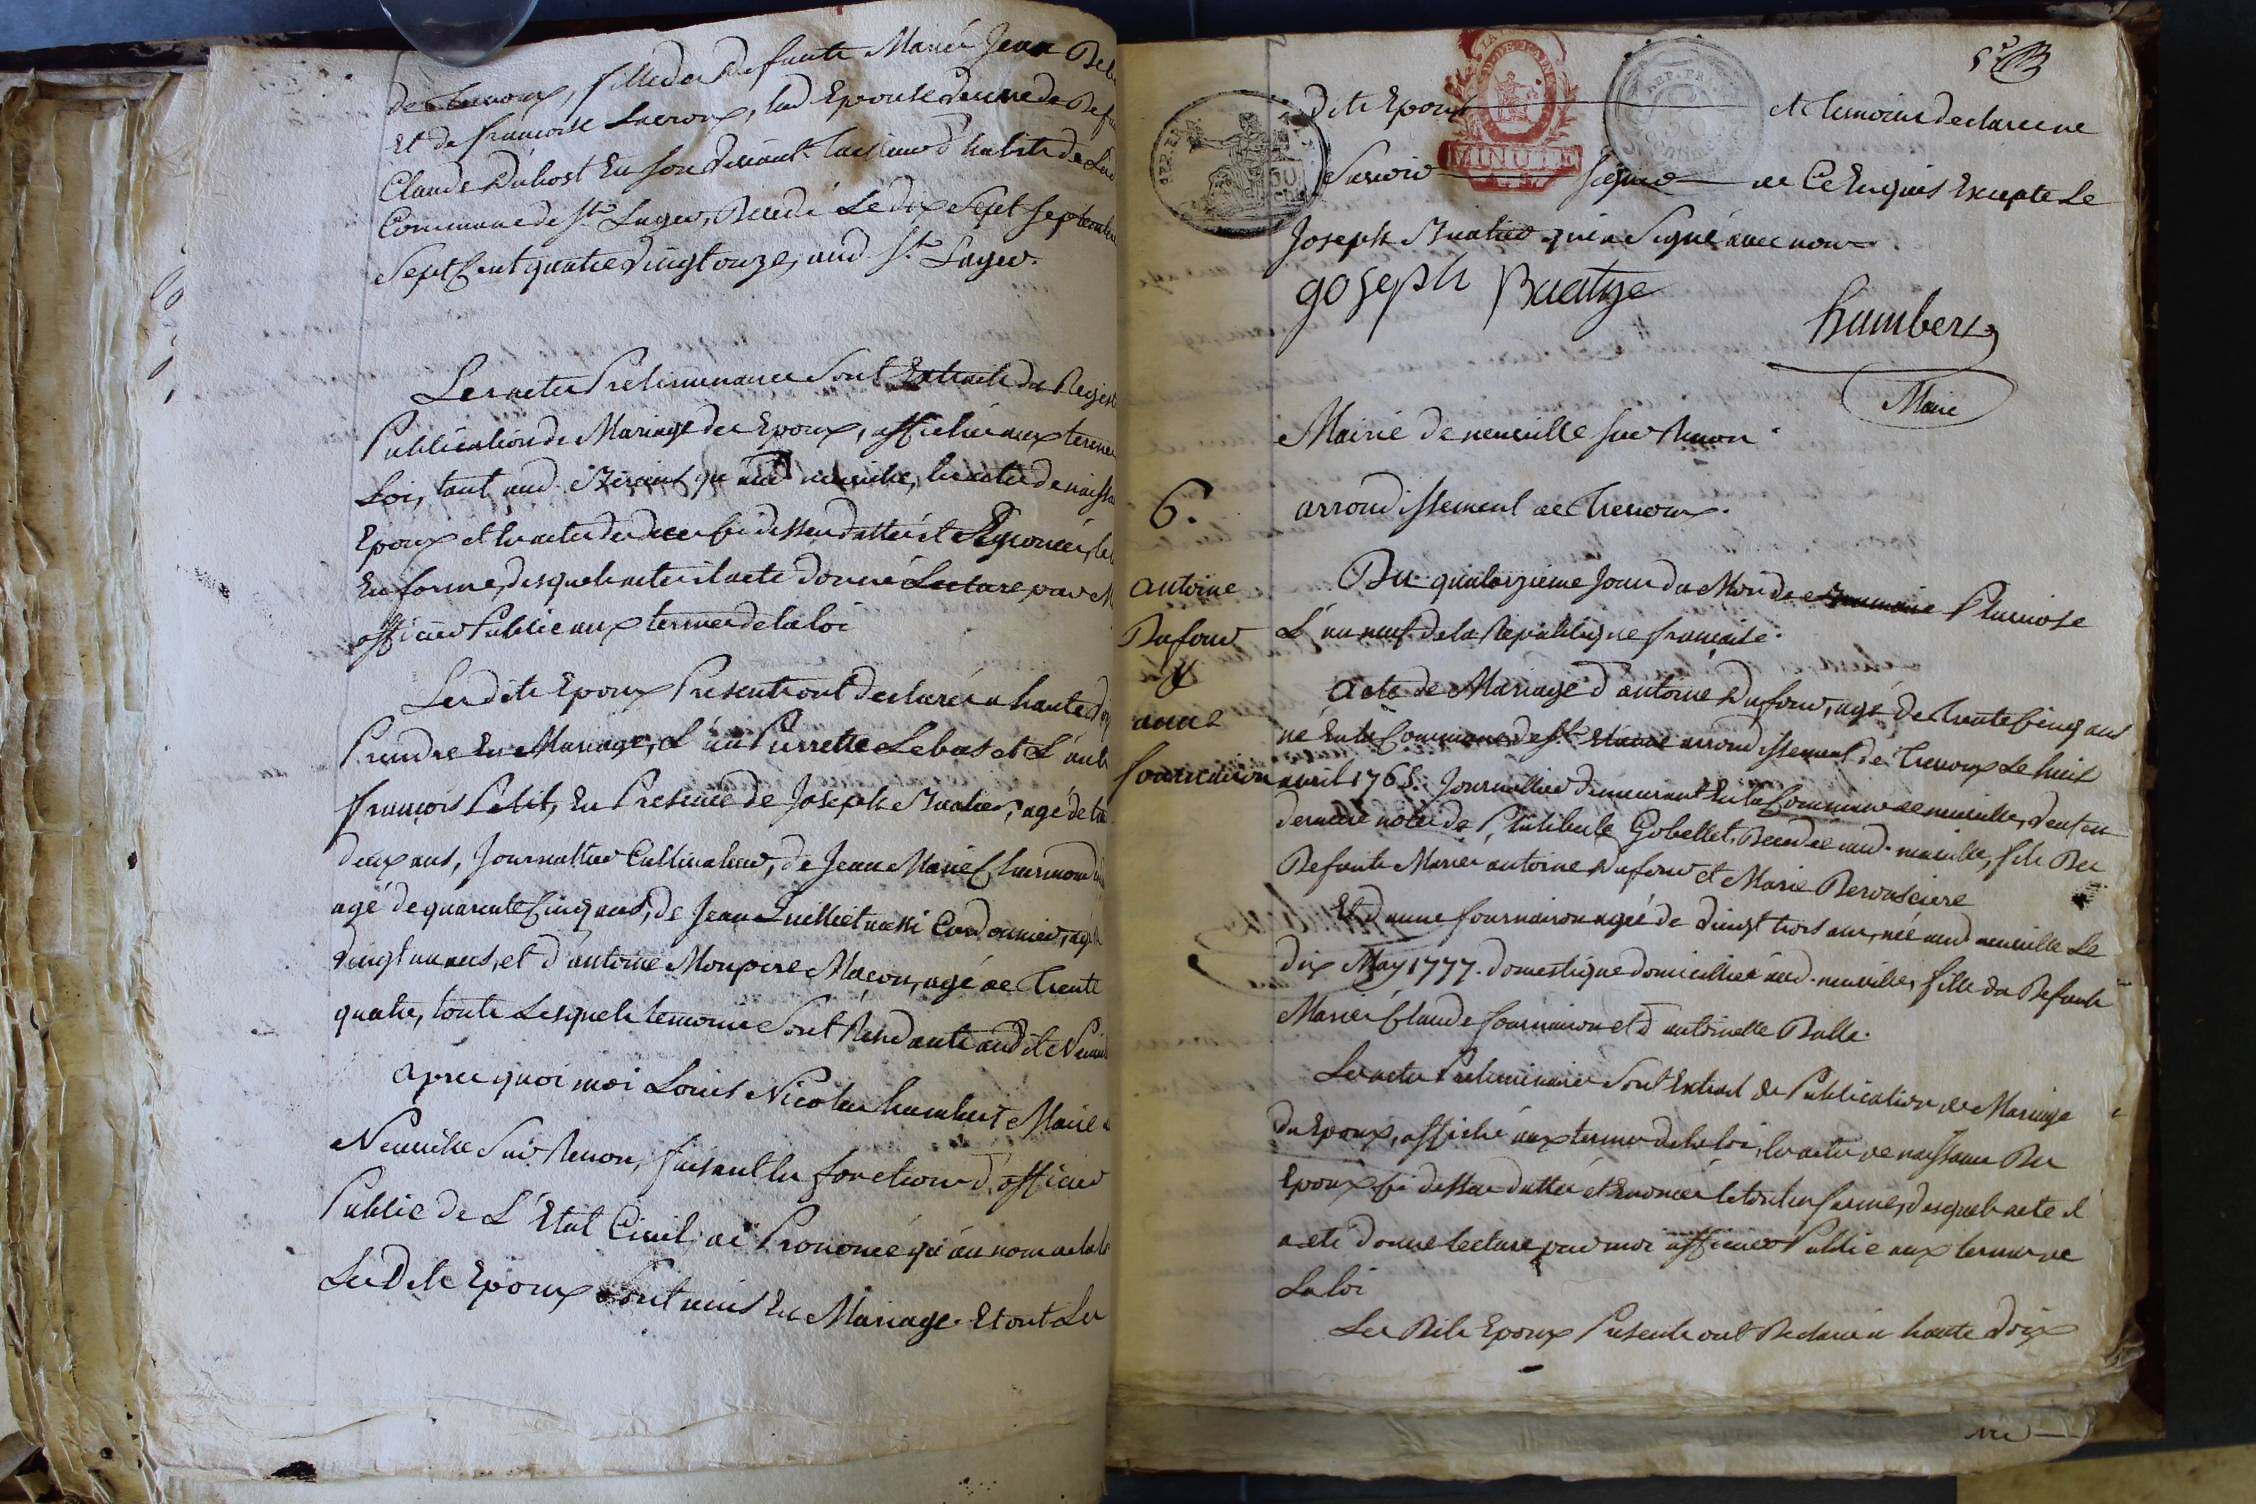 de Trevoux, fille des Defunts Mariés Jean
Et de françoise Lacroix, lad Epouse Veuve de
Claude Duhost En son vivant
Commune de St Lager, Decedé Le dix Sept Septembre
Sept Cent quatre vingt onze, aud St Lager.
Les actes Preliminaires Sont Extraits du
Publication de Mariage des Epoux, affichés aux termes
Loi, tant aud qu'aud neuville, les actes de
Epoux et les actes de deces ci dessus dattés et Enoncés,
En forme, desquels actes il a eté donné Lecture, par
officier Public aux termes de la loi
Les dits Epoux Presents ont declaré a haute
Prendre En Mariage, L'un Pierrette Lebas et L'autre
françois Petit, En Presence de Joseph Buatier, agé de
deux ans, Journallier Cultivateur, de Jean Marie
agé de quarante Cinq ans, de Jean Quilliet aussi Cordonnier,
vingt un ans, et d'antoine Monpere Macon, agé de Trente
quatre, touts Lesquels temoins Sont
aprés quoi moi Louis Nicolas humbert Maire
Neuville Sur Renon, faisant les fonctions d'officier
Public de L'Etat Civil, ai Prononcé qu'au nom de la
Les Dits Epoux Sont unis En Mariage. Et ont Les
5e
dits Epoux et temoins declaré ne
Savoir signer de Ce Enquis Excepté Le
Joseph Buatier qui a Signé avec nous.
goseph Buatye
humbert
Maire
Mairie de neuville sur Renon
arrondissement de Trevoux.
6.
antoine
Dufour
&
anne
fournaison
Du quatorzieme Jour du Mois de Brumaire Pluviose
L'an neuf de la Republique française.
acte de Mariage d'antoine Dufour, agé de Trente Cinq ans
né En la Commune de St Etienne arrondissement de Trevoux Le huit
avril 1765. Journallier demeurant En la Commune de neuville, veuf en
derniere notes de Philiberte Gobellet, Decedée aud. neuville, fils Des
Defunts Mariés antoine Dufour et Marie
Et d'anne fournaison agée de vingt trois ans, née aud neuville Le
dix May 1777. domestique domiciliée aud. neuville, fille des Defunts
Mariés Claude fournaison et d'antoinette Balle.
Les actes Preliminaires Sont Extrait de Publication de Mariage
des Epoux, affiché aux termes de la loi, les actes de naissance Des
Epoux ci dessus dattés et Enoncés le tout en forme, desquels acte il
a eté donné lecture, par moi officier Public aux termes de
La loi
Les Dits Epoux Presents ont Declaré a haute voix